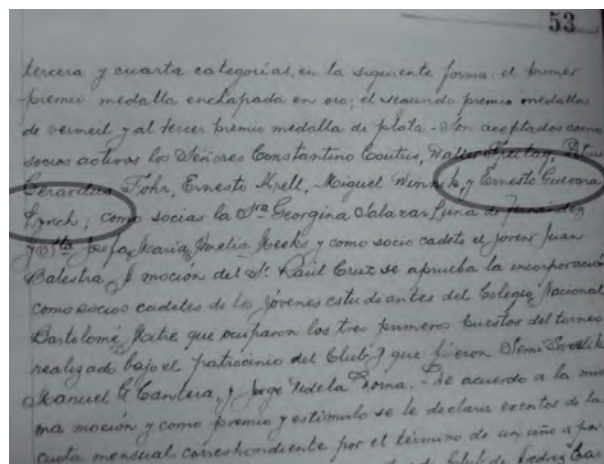 53
tercera y cuarta categorías, en la siguiente forma: el primer
premio medalla enchapada en oro; el segundo premio medallas
de vermeil y al tercer premio medalla de plata - Son aceptados como
socios activos los Señores Constantino Coutris, Walter Freitag,
Gerardus Fohr, Ernesto Krell, Miguel Winnik, y Ernesto Guevara
Lynch; como socias la Sra Georgina Salazar Luna de Fernández
y Josefa María Amelia y como socio cadete el joven Juan
Balestra. A moción del Sr. Raúl Cruz se aprueba la incorporación
como socios cadetes de los jóvenes estudiantes del Colegio Nacional
Bartolomé Mitre que ocuparon los tres primeros puestos del torneo
realizado bajo el patrocinio del Club, y que fueron
Manuel G. Cantera, y Jorge de la Torna. - De acuerdo a la mis
ma moción y como premio y estímulo se le declara exentos de la
cuota mensual correspondiente por el término de un año a par